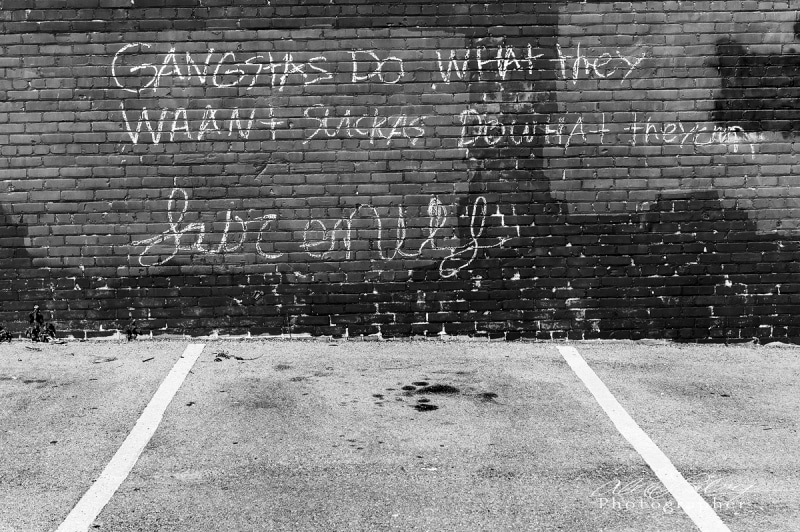 GANGSTAS DO WHAT they
WAANT SUCKAS DO WHAT they can
Photographer